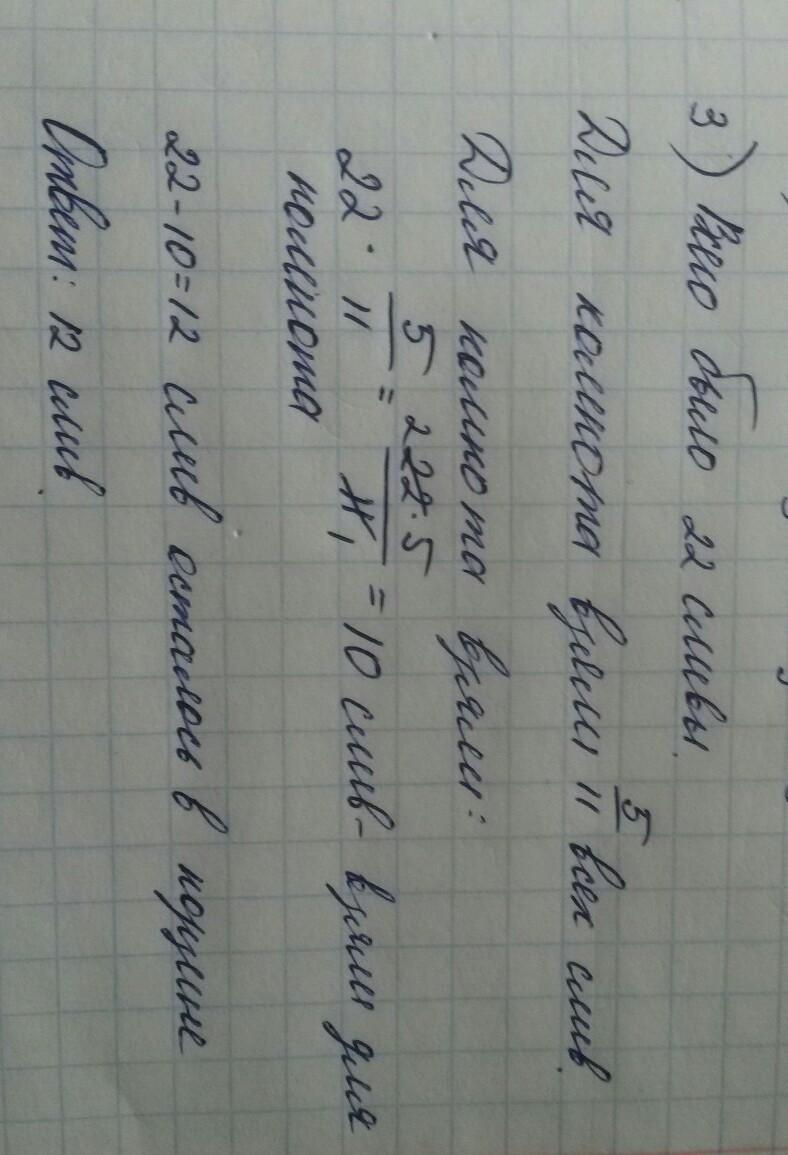 3) Всего было 22 сливы.
Для компота взяли 5/11 всех слив.
Для компота взяли:
22 · 5/11 = 22 · 5/11 = 10 слив - взяли для
компота
22-10=12 слив осталось в корзине
Ответ: 12 слив.